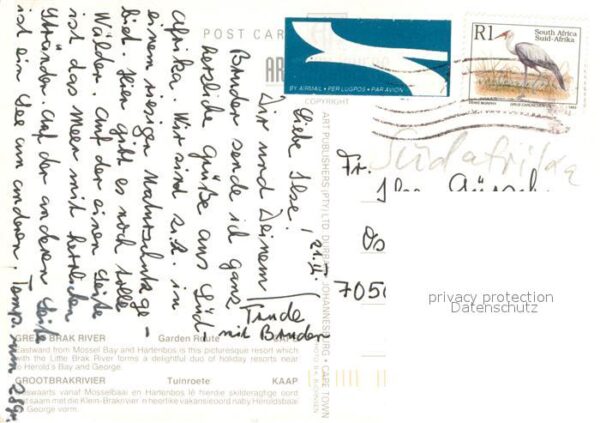 POST CARD
AR
BY AIRMAIL • PER LUGPOS • PAR AVION
R1 South Africa
Suid-Afrika
COPYRIGHT
ART PUBLISHERS (PTY) LTD. DURBAN, JOHANNESBURG, CAPE TOWN
Südafrika
21.II.
Liebe Ilse!
Dir und Deinem
Bruder sende ich ganz
herzliche Grüße aus Süd-
Afrika. Wir sind z.Z. in
einem riesigen Naturschutzge-
biet. Hier gibt es noch tolle
Wälder. Auf der einen Seite
ist das Meer mit herrlichen
Stränden auf der anderen Seite
ist ein See am anderen. Temp. um 28gr.
Trude
mit Bruder
Fr.
Ilse
705
privacy protection
Datenschutz
GREAT BRAK RIVER Garden Route
Eastward from Mossel Bay and Hartenbos is this picturesque resort which
with the Little Brak River forms a delightful duo of holiday resorts near
to Herold's Bay and George.
GROOTBRAKRIVIER Tuinroete KAAP
Ooswaarts vanaf Mosselbaai en Hartenbos lê hierdie skilderagtige oord
wat saam met die Klein-Brakrivier 'n heerlike vakansieoord naby Heroldsbaai
en George vorm.